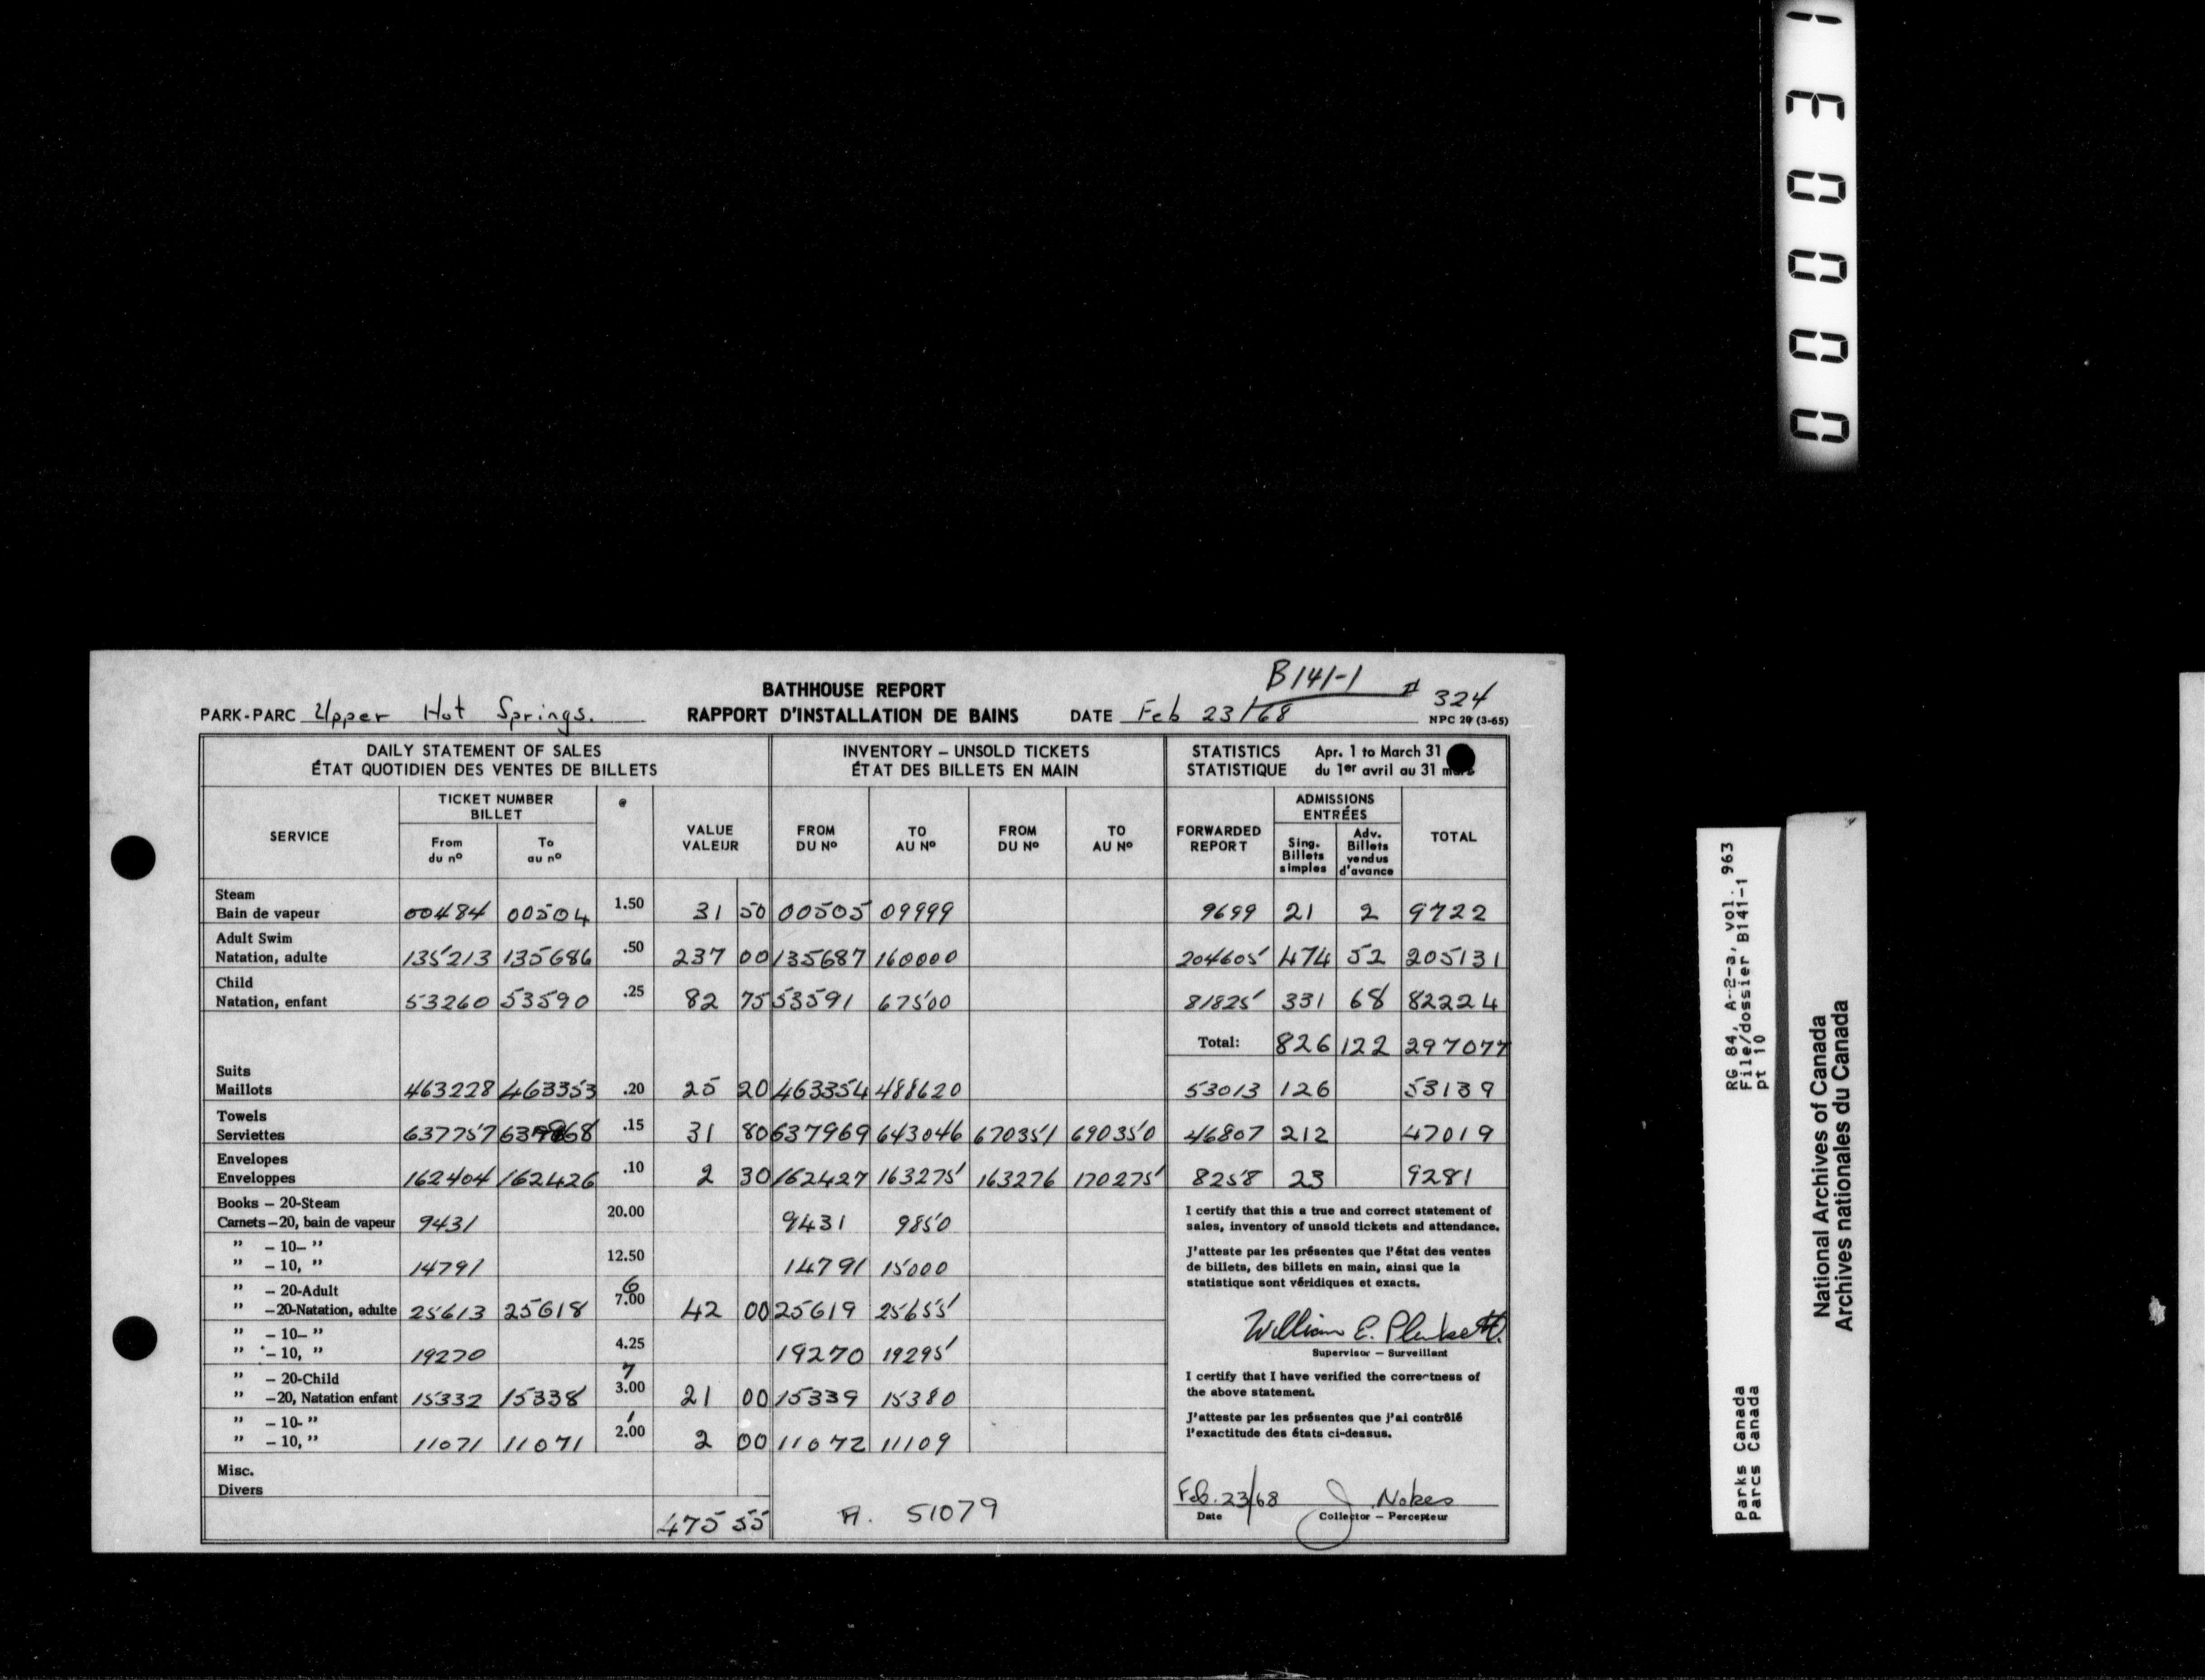 130000
B141-1
# 324
BATHHOUSE REPORT
PARK-PARC Upper Hot Springs. RAPPORT D'INSTALLATION DE BAINS DATE Feb 23/68 NPC 20 (3-65)
DAILY STATEMENT OF SALES INVENTORY – UNSOLD TICKETS STATISTICS Apr. 1 to March 31
ÉTAT QUOTIDIEN DES VENTES DE BILLETS ÉTAT DES BILLETS EN MAIN STATISTIQUE du 1er avril au 31 mars
SERVICE
TICKET NUMBER
BILLET
From
du nº
To
au nº
@
VALUE
VALEUR
FROM
DU Nº
TO
AU Nº
FROM
DU Nº
TO
AU Nº
FORWARDED
REPORT
ADMISSIONS
ENTRÉES
Sing.
Billets
simples
Adv.
Billets
vendus
d'avance
TOTAL
Steam
Bain de vapeur 00484 00504 1.50 31 50 00505 09999 9699 21 2 9722
Adult Swim
Natation, adulte 135213 135686 .50 237 00 135687 160000 204605 474 52 205131
Child
Natation, enfant 53260 53590 .25 82 75 53591 67500 81825 331 68 82224
Total: 826 122 297077
Suits
Maillots 463228 463353 .20 25 20 463354 488620 53013 126 53139
Towels
Serviettes 637757 637968 .15 31 80 637969 643046 670351 690350 46807 212 47019
Envelopes
Enveloppes 162404 162426 .10 2 30 162427 163275 163276 170275 8258 23 9281
Books – 20-Steam
Carnets–20, bain de vapeur 9431 20.00 9431 9850
" – 10– "
" – 10, " 14791 12.50 14791 15000
" – 20-Adult 6
" –20-Natation, adulte 25613 25618 7.00 42 00 25619 25655
" – 10– "
" – 10, " 19270 4.25 19270 19295
" – 20-Child 7
" –20, Natation enfant 15332 15338 3.00 21 00 15339 15380
" – 10- " 1
" – 10, " 11071 11071 2.00 2 00 11072 11109
Misc.
Divers
475 55 A. 51079
I certify that this a true and correct statement of
sales, inventory of unsold tickets and attendance.
J'atteste par les présentes que l'état des ventes
de billets, des billets en main, ainsi que la
statistique sont véridiques et exacts.
William E. Plunkett.
Supervisor – Surveillant
I certify that I have verified the correctness of
the above statement.
J'atteste par les présentes que j'ai contrôlé
l'exactitude des états ci-dessus.
Feb. 23/68 J. Nokes
Date Collector – Percepteur
RG 84, A-2-a, vol. 963
File/dossier B141-1
pt 10
Parks Canada
Parcs Canada
National Archives of Canada
Archives nationales du Canada